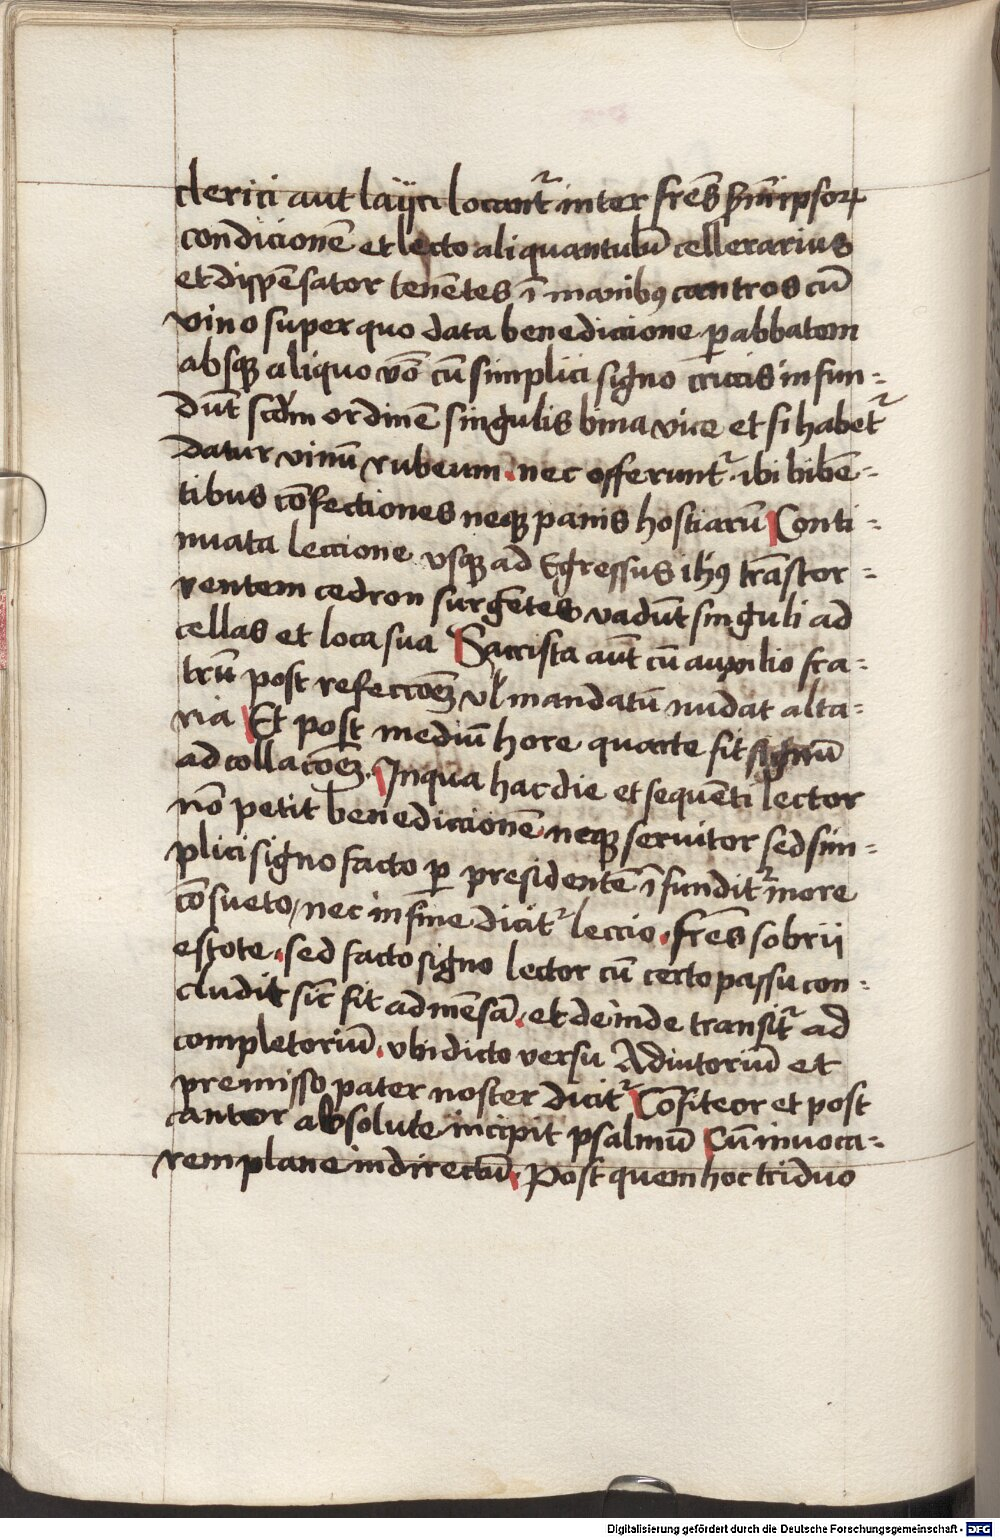 clerici aut layci locant᷑ inter fr̄es s̄m ipsoꝝ
condicionē et lecto aliquantulū cellerarius
et dispēsator tenētes ī manibꝰ cantros cū
vino super quo data benediccione ꝑ abbatem
absqꝫ aliquo v̄o cū simplici signo crucis infun=
dūt scdm ordinē singulis bina vice et si habet᷑
datur vinū rubeum. nec offerunt᷑ ibi bibē=
tibus cōfectiones neqꝫ panis hostiarū Conti=
nuata leccione vsqꝫ ad Egressus ihꝰ trās tor=
rentem cedron surgētes vadūt singuli ad
cellas et loca sua Sacrista aūt cū auxilio fra=
trū post refeccōeꝫ vl̓ mandatū nudat alta=
ria Et post mediū hore quarte fit signū
ad collacōeꝫ. In qua hac die et sequēti lector
nō petit benediccionē neqꝫ seruitor sed sim=
plici signo facto ꝑ presidentē īfundit᷑ more
cōsueto, nec in fine dicit᷑ leccio. fr̄es sobrii
estote. sed facto signo lector cū certo passu con=
cludit sic̄ fit ad mēsā. et deinde transit᷑ ad
completoriū. vbi dicto versu Adiutoriū et
premisso pater noster dicit᷑ Cōfiteor et post
cantor absolute incipit psalmū Cū inuoca=
rem plane in directū. Post quem hoc triduo
Digitalisierung gefördert durch die Deutsche Forschungsgemeinschaft - DFG